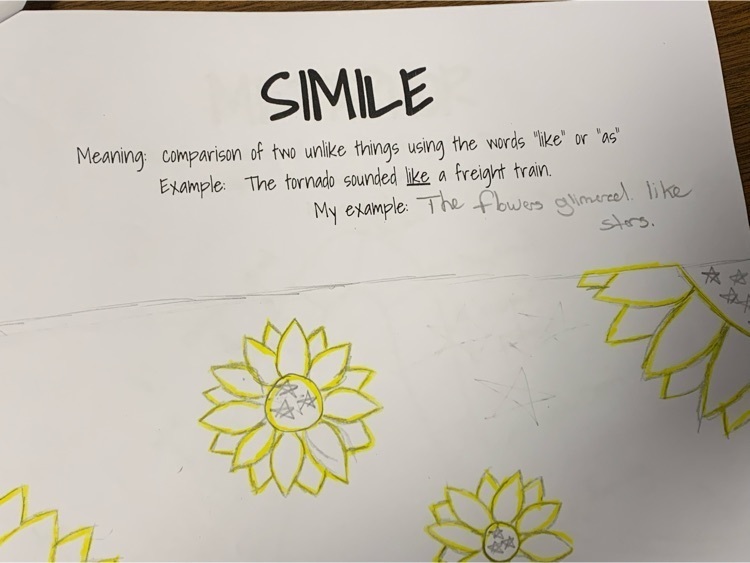 SIMILE
Meaning: comparison of two unlike things using the words "like" or "as"
Example: The tornado sounded like a freight train.
My example: The flowers glimered. like
stars.